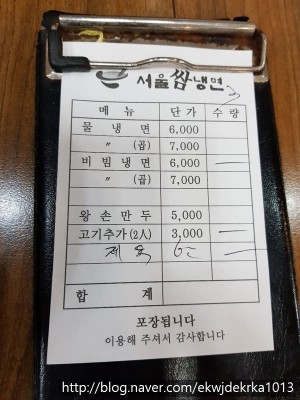 서울쌈냉면
메뉴 단가 수량
물냉면 6,000
〃 (곱) 7,000
비빔냉면 6,000 一
〃 (곱) 7,000
왕손만두 5,000
고기추가(2人) 3,000 一
제육
합계
포장됩니다
이용해 주셔서 감사합니다
http://blog.naver.com/ekwjdekrka1013